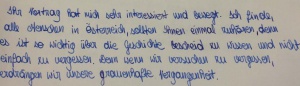 Ihr Vortrag hat mich sehr interessiert und bewegt. Ich finde,
alle Menschen in Österreich, sollten Ihnen einmal zuhören, denn
es ist so wichtig über die Geschichte bescheid zu wissen und nicht
einfach zu vergessen. Denn wenn wir versuchen zu vergessen,
verdrängen wir unsere grauenhafte Vergangenheit.